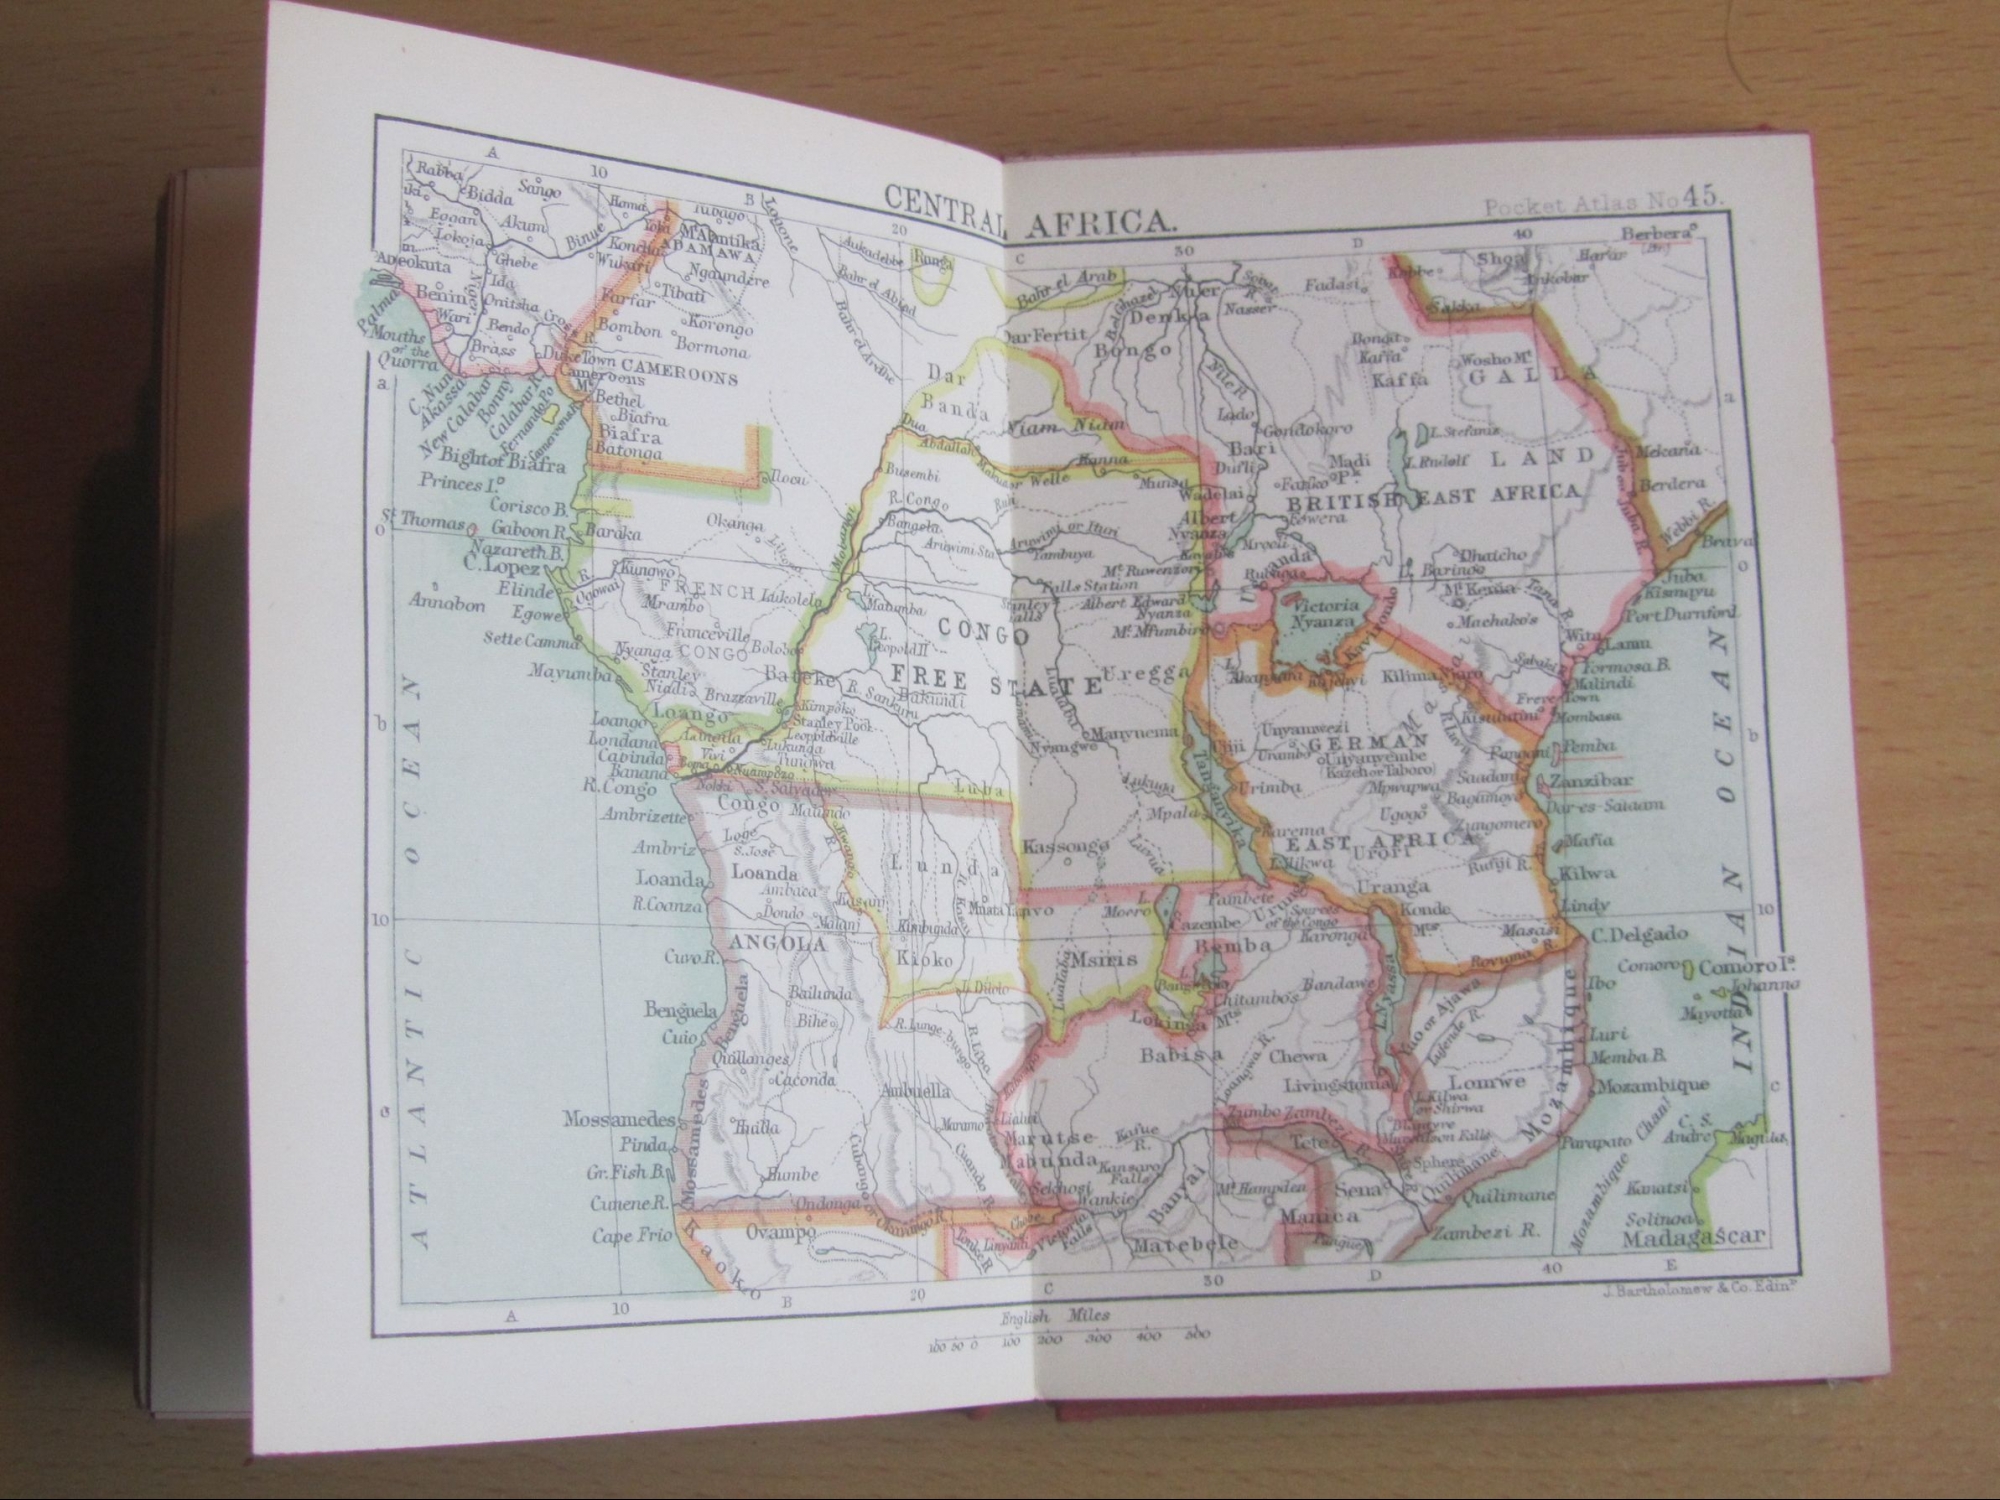 CENTRAL AFRICA.
Pocket Atlas No 45.
A
10
B
20
C
30
D
40
Rabba
Bidda
Sango
Hama
Eggan
Akum
Lokoja
Binue
Yola
Kontcha
ADAMAWA
Ghebe
Wukari
Ngaundere
Ida
Tibati
Benin
Niger
Onitsha
Farfar
Wari
Bendo
Cross R.
Bombon
Korongo
Bormona
Brass
Duke Town
CAMEROONS
Cameroons Mt
Palma
Mouths
of the
Quorra
C. Nun
Akassa
New Calabar
Bonny
Calabar R.
Fernando Po
Bethel
Biafra
Biafra
Batonga
Bight of Biafra
Princes I.
Corisco B.
St. Thomas
Gaboon R.
Baraka
Nazareth B.
C. Lopez
Elinde
R. Ogowai
Egowe
Annobon
Sette Camma
Mayumba
Okanga
Kungwo
FRENCH
CONGO
Mrambo
Lukolela
Franceville
Nyanga
Bolobo
Stanley
Niadi
Brazzaville
Bateke
Loango
Loango
Londana
Cabinda
Banana
R. Congo
Vivi
Kimpoko
Stanley Pool
Leopoldville
Lukunga
Nokki
S. Salvador
Congo
Ambrizette
Ambriz
Loge
S. José
Loanda
Loanda
Ambaca
R. Coanza
Dondo
Malanj
Kasanj
ANGOLA
Cuvo R.
Bailunda
Benguela
Benguela
Bihe
Cuio
Quillanges
Caconda
Mossamedes
Mossamedes
Huilla
Pinda
Gr. Fish B.
Humbe
Cunene R.
Cape Frio
Ovampo
Ondonga
Kaoko
ATLANTIC OCEAN
Logone
Aukadebbe
Runga
Bahr el Abiad
Bahr el Ardhe
Dar
Banda
Bahr el Arab
Dar Fertit
Dua
Abdallah
Makua or Welle
Kanna
Niam Niam
Busembi
Mobangi
R. Congo
Bangala
Aruwimi Sta.
Aruwimi or Ituri
Yambuya
Falls Station
Stanley Falls
Matumba
L. Leopold II
CONGO
FREE STATE
R. Sankuru
Bakundi
Luba
Lunda
Kwango R.
R. Kasai
Muata Yanvo
Kimbunda
Kioko
L. Dilolo
R. Lunge-bungo
R. Liba
Ambuella
Cubango or Okavango R.
Cuando R.
Lialui
Marutse
Mabunda
Sekhosi
Wankie
Linyanti
Chobe
Victoria Falls
Kansaro Falls
Kafue R.
Nuer
Denka
Bongo
Bahr el Ghazel
Sobat R.
Nasser
Fadasi
Nile R.
Lado
Gondokoro
Bari
Dufli
Madi
Fatiko
Munsa
Wadelai
Albert Nyanza
Mt. Ruwenzori
Albert Edward Nyanza
Mt. Mfumbiro
Mruli
Uganda
Rubaga
Victoria
Nyanza
Kavirondo
Shoa
Ankobar
Harar
Berbera
Kobbe
Sakka
Bonga
Kaffa
Kaffa
Wosho Mt.
GALLA
LAND
L. Stefanie
L. Rudolf
BRITISH EAST AFRICA
Mekana
Berdera
Juba R.
Webbi R.
Brava
L. Baringo
Mt. Kenia
Tana R.
Machako's
Juba
Kismayu
Port Durnford
Witu
Lamu
Formosa B.
Malindi
Frere Town
Mombasa
Sabaki
Kilima Njaro
Masai
Kisulutini
Pangani
Pemba
Zanzibar
Saadani
Bagamoyo
Dar-es-Salaam
Mafia
Kilwa
Lindy
Uregga
Lualaba
Nyangwe
Manyuema
Lukuga
Mpala
Tanganyika
Ujiji
Unyamwezi
Urambo
Unyanyembe
(Kazeh or Taboro)
GERMAN
EAST AFRICA
Urimba
Mpwapwa
Ugogo
Zungomero
Karema
Urori
L. Hikwa
Rufiji R.
Uranga
Konde
Masasi
Rovuma R.
C. Delgado
Kassongo
Lufua
L. Moero
Cazembe
Pambete
Urungu
Sources
of the Congo
Bemba
Karonga
Msiris
L. Bangweolo
Chitambo's
Bandawe
Lokinga Mts
Babisa
Chewa
Loangwa R.
Livingstonia
L. Nyassa
Yao or Ajawa
Lujende R.
Lomwe
L. Kilwa
or Shirwa
Blantyre
Murchison Falls
Zumbo
Zambezi R.
Tete
Mt. Hampden
Sena
Banyai
Manica
Matebele
Pungwe
Quilimane
Quilimane
Zambezi R.
Mozambique
Mozambique
Ibo
Luri
Memba B.
Parapato
Mozambique Chanl
Comoro
Comoro Is.
Johanna
Mayotta
C. St. Andre
Kanatsi
Solinoa
Madagascar
INDIAN OCEAN
J. Bartholomew & Co. Edinr.
10
20
30
40
A
B
C
D
E
English Miles
100 50 0 100 200 300 400 500